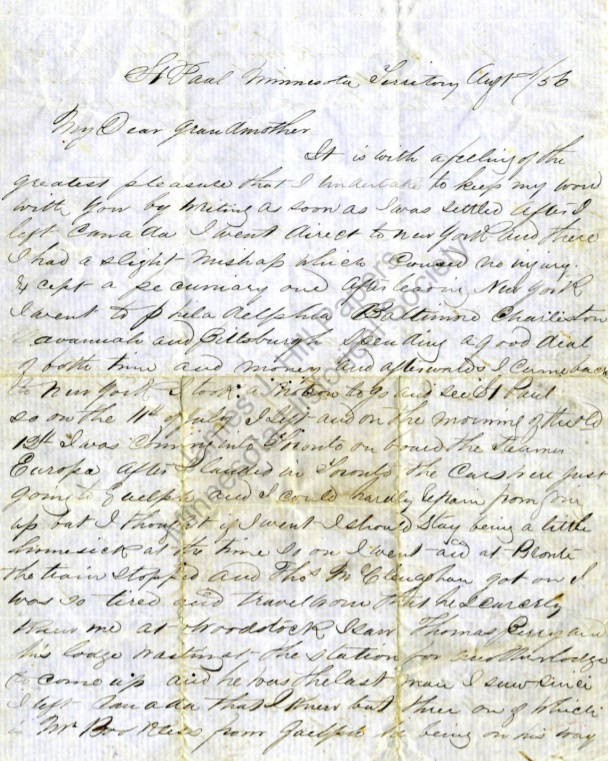 St Paul Minnesota Territory Augt 1/56
My Dear Grandmother
It is with a feeling of the
greatest pleasure that I undertake to keep my word
with you by writing as soon as I was settled after I
left Canada I went direct to New York and there
I had a slight mishap which caused no injury
Except a pecuniary one after leaving New York
I went to Philadelphia Baltimore Charleston
Savannah and Pittsburgh Spending a good deal
of both time and money and afterwards I came back
to New York I took a notion to go and see St Paul
so on the 11th of July I left and on the morning of the
13th I was coming into Toronto on board the Steamer
Europa after I landed in Toronto the Cars were just
going to Guelph and I could hardly refrain from
up but I thought if I went I should Stay being a little
homesick at the time So on I went and at Bronte
the train stopped and Thos McClenaghan got on I
was so tired and travel worn that he Scarcely
knew me at Woodstock I saw Thomas Perry and
his lodge waiting at the station for another lodge
to come up and he was the last man I saw since
I left Canada that I knew but three on of which
is Mr from Guelph he being on his way
James J. Hill Papers
Minnesota Historical Society